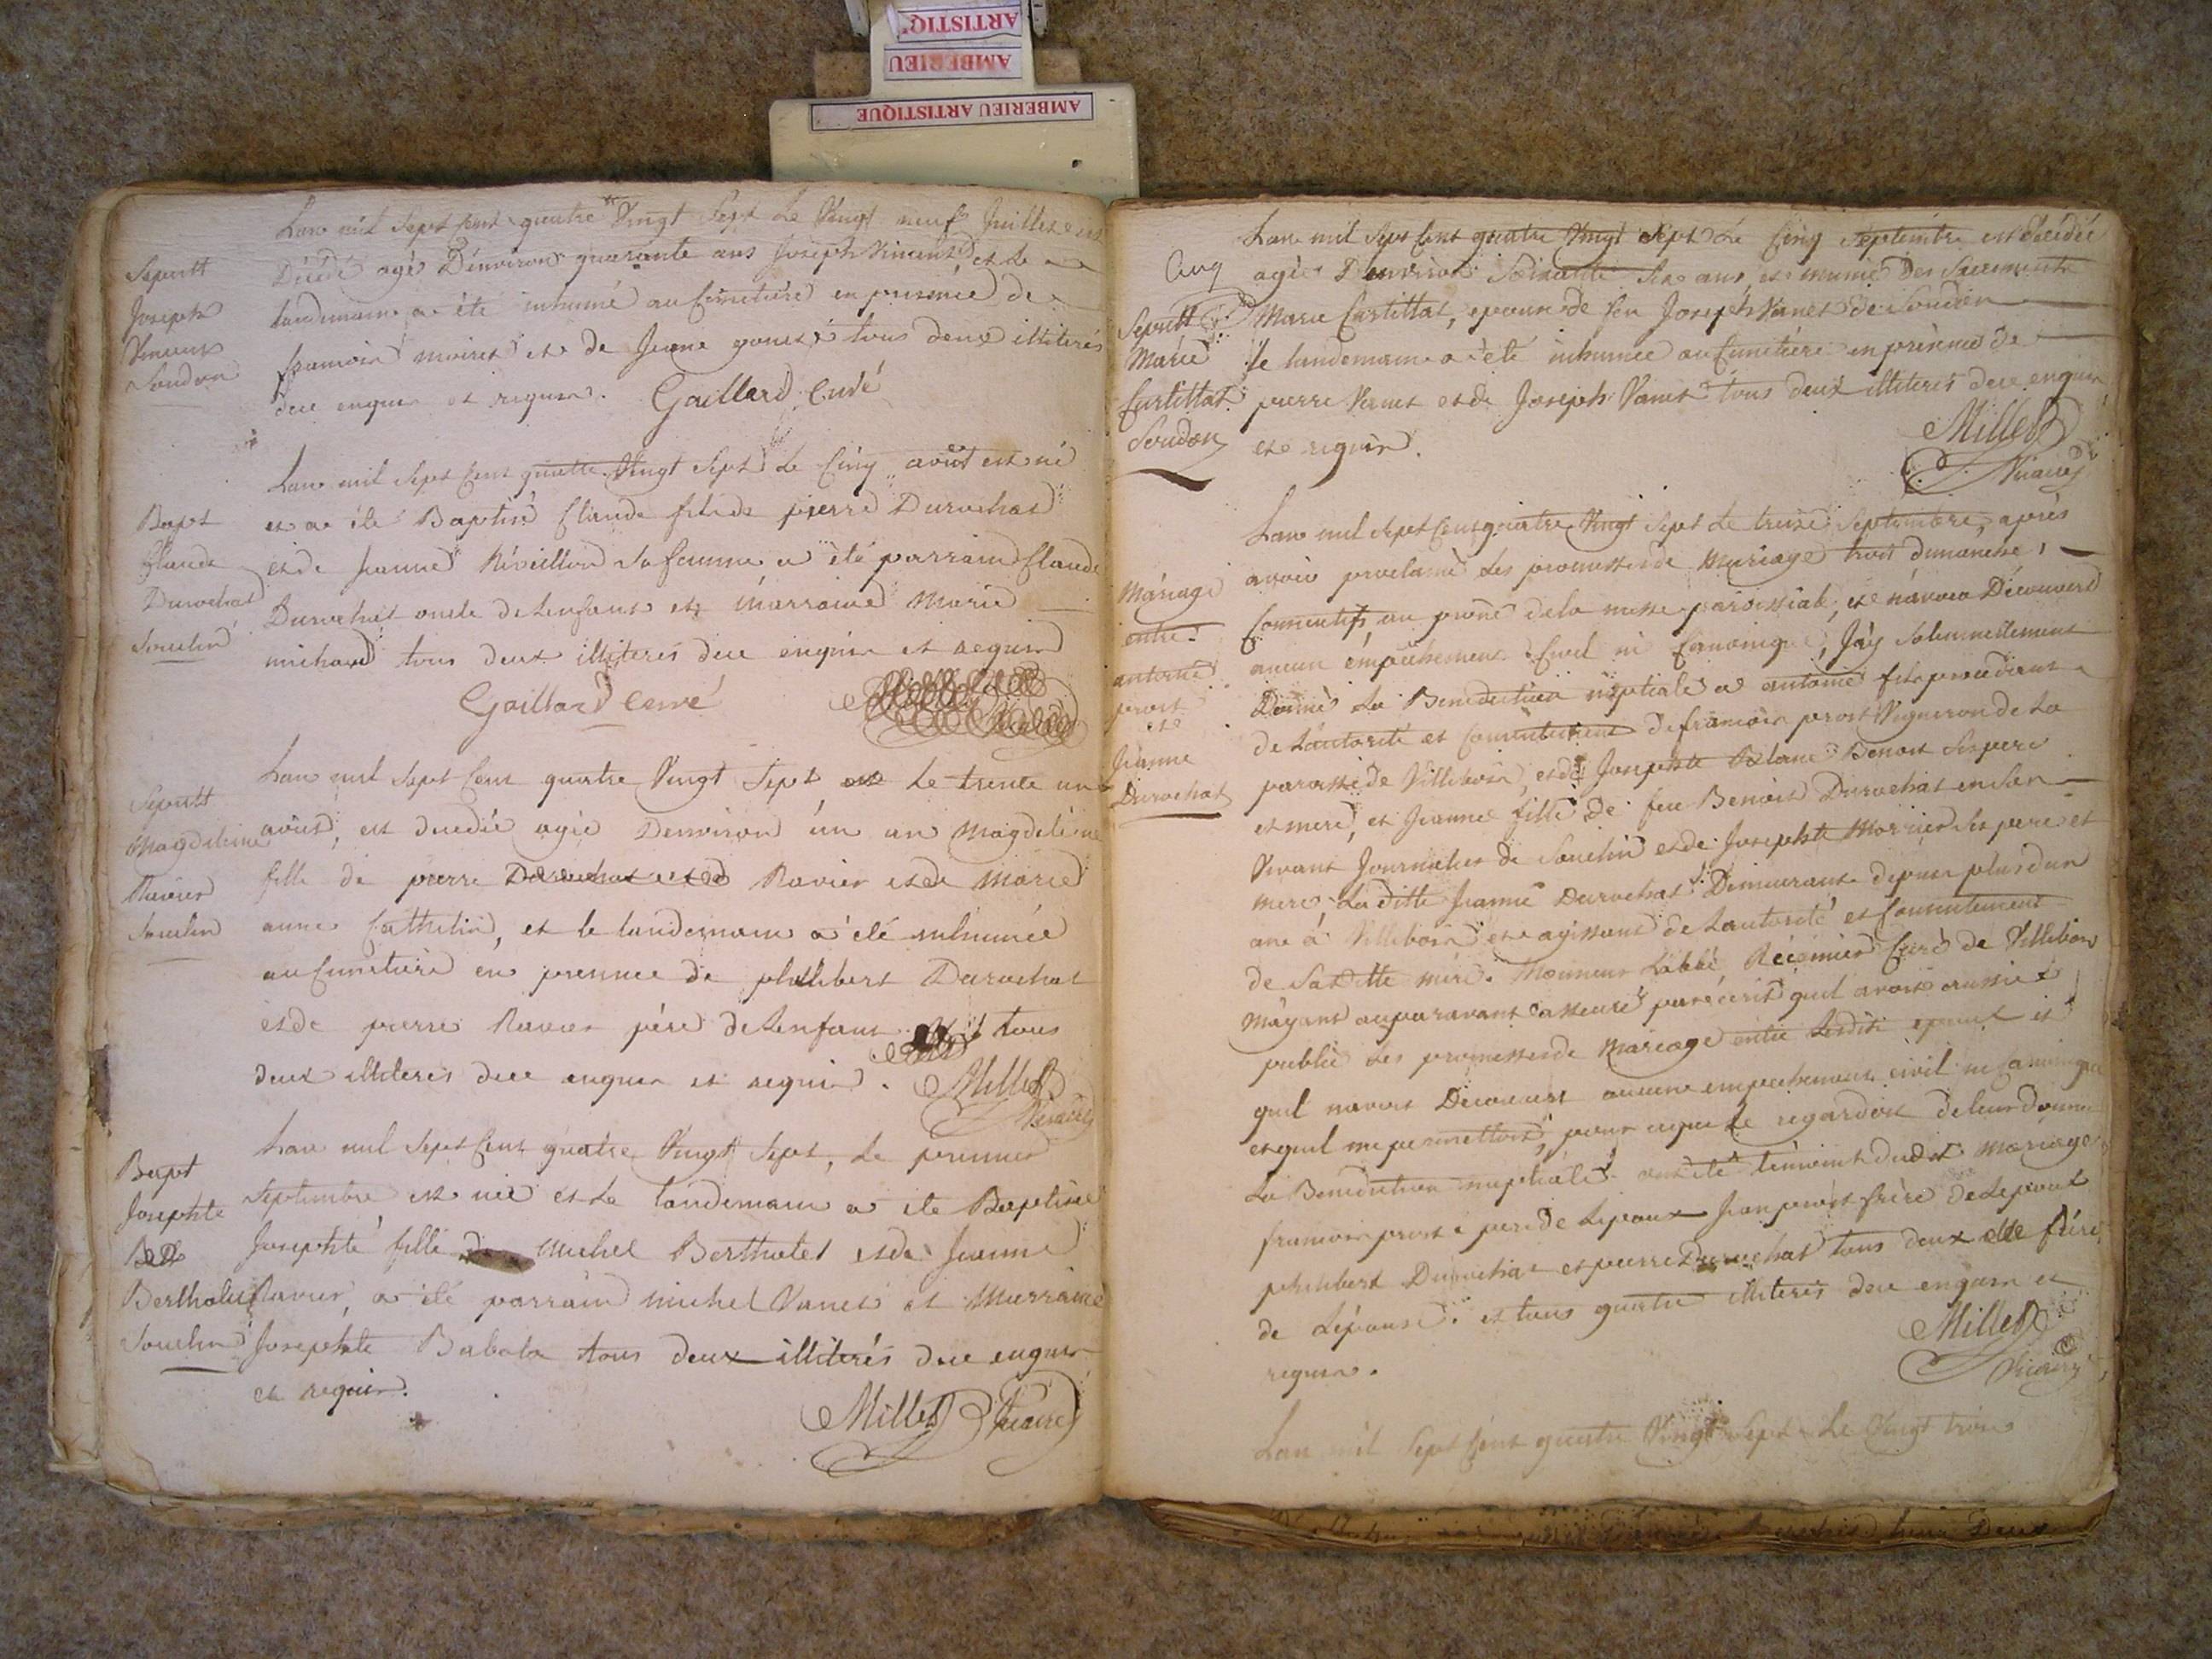 ARTISTIQ
AMBERIEU
AMBERIEU ARTISTIQUE
Lan mil sept cent quatre Vingt sept Le Vingt neuf Juillet est
Décédé agé Denviron quarante ans Joseph Vincent et Le
landemain a été inhumé au Cimetiére en présence de
francois moiret et de Jeane tous deux illiterés
dece enquis et requis. Gaillard Curé
Sepult
Joseph
Vincent
Soudon
Lan mil sept cent quatre Vingt sept Le Cinq août est né
et a été Baptisé Claude fils de pierre Durochat
et de Jeanne Réveillon sa femme a été parrain Claude
Durochat oncle de Lenfant et marraine Marie
michaud tous deux illiteres dece enquis et requis
Gaillard curé
Bapt
Claude
Durochat
Souclin
Lan mil sept cent quatre Vingt sept Le trente un
août, est decédée agée Denviron un an Magdeleine
fille de pierre Durochat et de Ravier et de Marie
anne Cathelin, et le landemain a été inhumée
au Cimetiére en presence de philibert Durochat
et de pierre Ravier pére de Lenfant tous
deux illiteres dece enquis et requis.
Millet
Vicaire
Sepult
Magdeleine
Ravier
Souclin
Lan mil sept cent quatre Vingt sept, Le premier
septembre est née et Le landemain a été Baptisée
Josephte fille de Michel Bertholet et de Jeanne
Ravier, a été parrain Michel Vanet et Marraine
Josephte Babola tous deux illiterés dece enquis
et requis.
Millet Vicaire
Bapt
Josephte
Berthollet
Souclin
Cinq
Lan mil sept cent quatre Vingt sept Le Cinq septembre est décédée
agée Denviron Soixante six ans et munie Des Sacrements
Marie Curtillat, epouse de feu Joseph Vanet de Soudon
le landemain a été inhumée au Cimetiére en présence de
pierre Vernet et de Joseph Vanet tous deux illiteres dece enquis
et requis.
Millet
Vicaire
Sepult
Marie
Curtillat
Soudon
Lan mil sept cent quatre Vingt sept Le treize septembre, aprés
avoir proclamé Les promesses de Mariage trois dimanche
Consecutifs au prône de la messe paroissiale, et n'avoir Découvert
aucun émpêchement Civil ni Canonique, J'ay Solennellement
Donné La Benediction nuptiale a antoine fils procedant
de Lautorité et Consentement de francois prost Vigneron de La
paroisse de Villebois, et de Josephte Blanc Benoit ses pere
et mere, et Jeanne fille de feu Benoit Durochat en son
Vivant Journalier de Souclin et de Josephte Morrier ses pere et
mere. La ditte Jeanne Durochat Demeurante depuis plus d'un
ans à Villebois et agissant de Lautorité et Consentement
de Saditte mére. Monsieur Labbé Récamier Curé de Villebois
m'ayant auparavant asseuré par écrit quil avoit aussi
publié Les promesses de Mariage entre Lesdits epoux et
quil navoit Decouvert aucune empechement civil ni canonique
et quil me permettoit, pour ce qui Le regardoit de leur donner
La Benediction nuptiale. ont été témoins dudit Mariage
francois prost pere de Lepoux Jean prost frére de Lepoux
philibert Durochat et pierre Durochat tous deux frére
de Lépouse. et tous quatre illiterés dece enquis et
requis.
Millet
Vicaire
Mariage
entre
antoine
prost
et
Jeanne
Durochat
Lan mil sept cent quatre Vingt sept Le Vingt trois